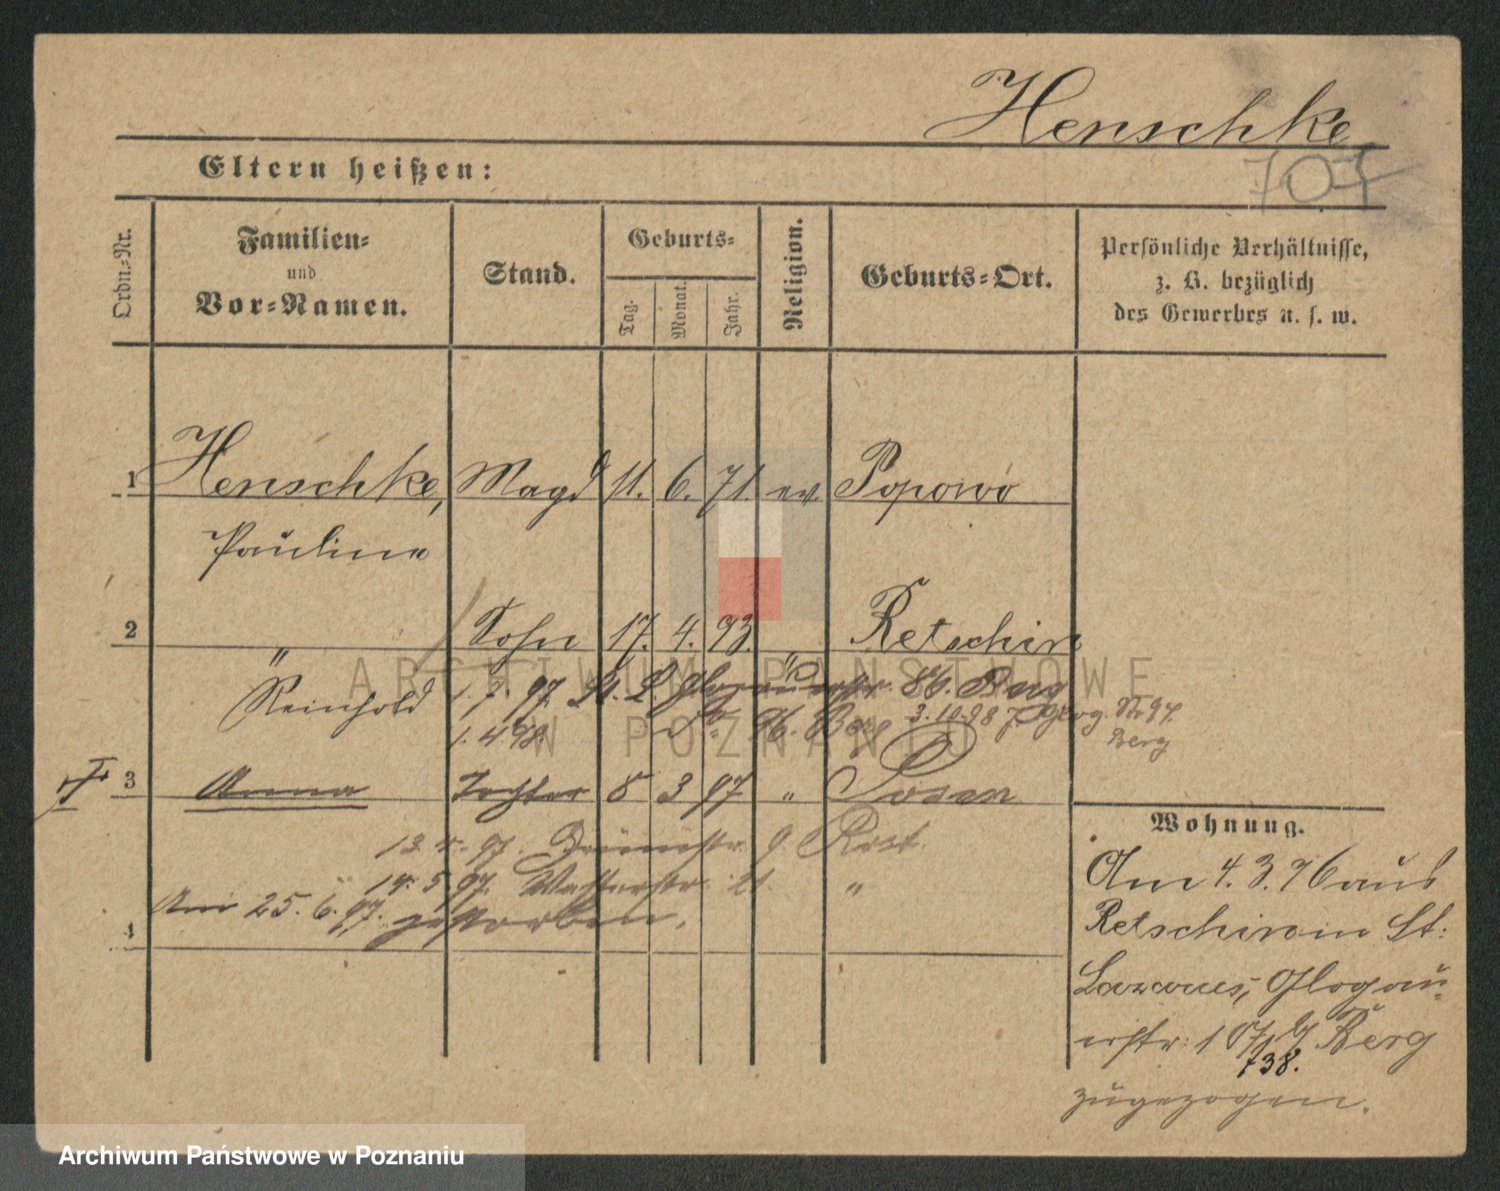 Henschke
707
Eltern heißen:
Ordn.-Nr.
Familien-
und
Vor-Namen.
Stand.
Geburts-
Tag.
Monat.
Jahr.
Religion.
Geburts-Ort.
Persönliche Verhältnisse,
z. B. bezüglich
des Gewerbes u. s. w.
1 Henschke, Magd 11. 6. 71. ev. Popowo
Pauline
2 " Sohn 17. 4. 93. " Retschin
Reinhold 1. 7. 97. St. L. Glogauerstr. 86. Berg
1. 4 98. 96. Berg 3.10.98 Berg
Berg
3 Anna Tochter 8 3 97 " Posen
97. 9 Rest.
14. 5 97. Wallstr. 21. "
Am 25. 6. 97. gestorben.
4
Wohnung.
Am 4. 3. 96 aus
Retschin in St.
Lazarus, Glogau-
erstr. Berg
738.
zugezogen.
ARCHIWUM PAŃSTWOWE
W POZNANIU
Archiwum Państwowe w Poznaniu